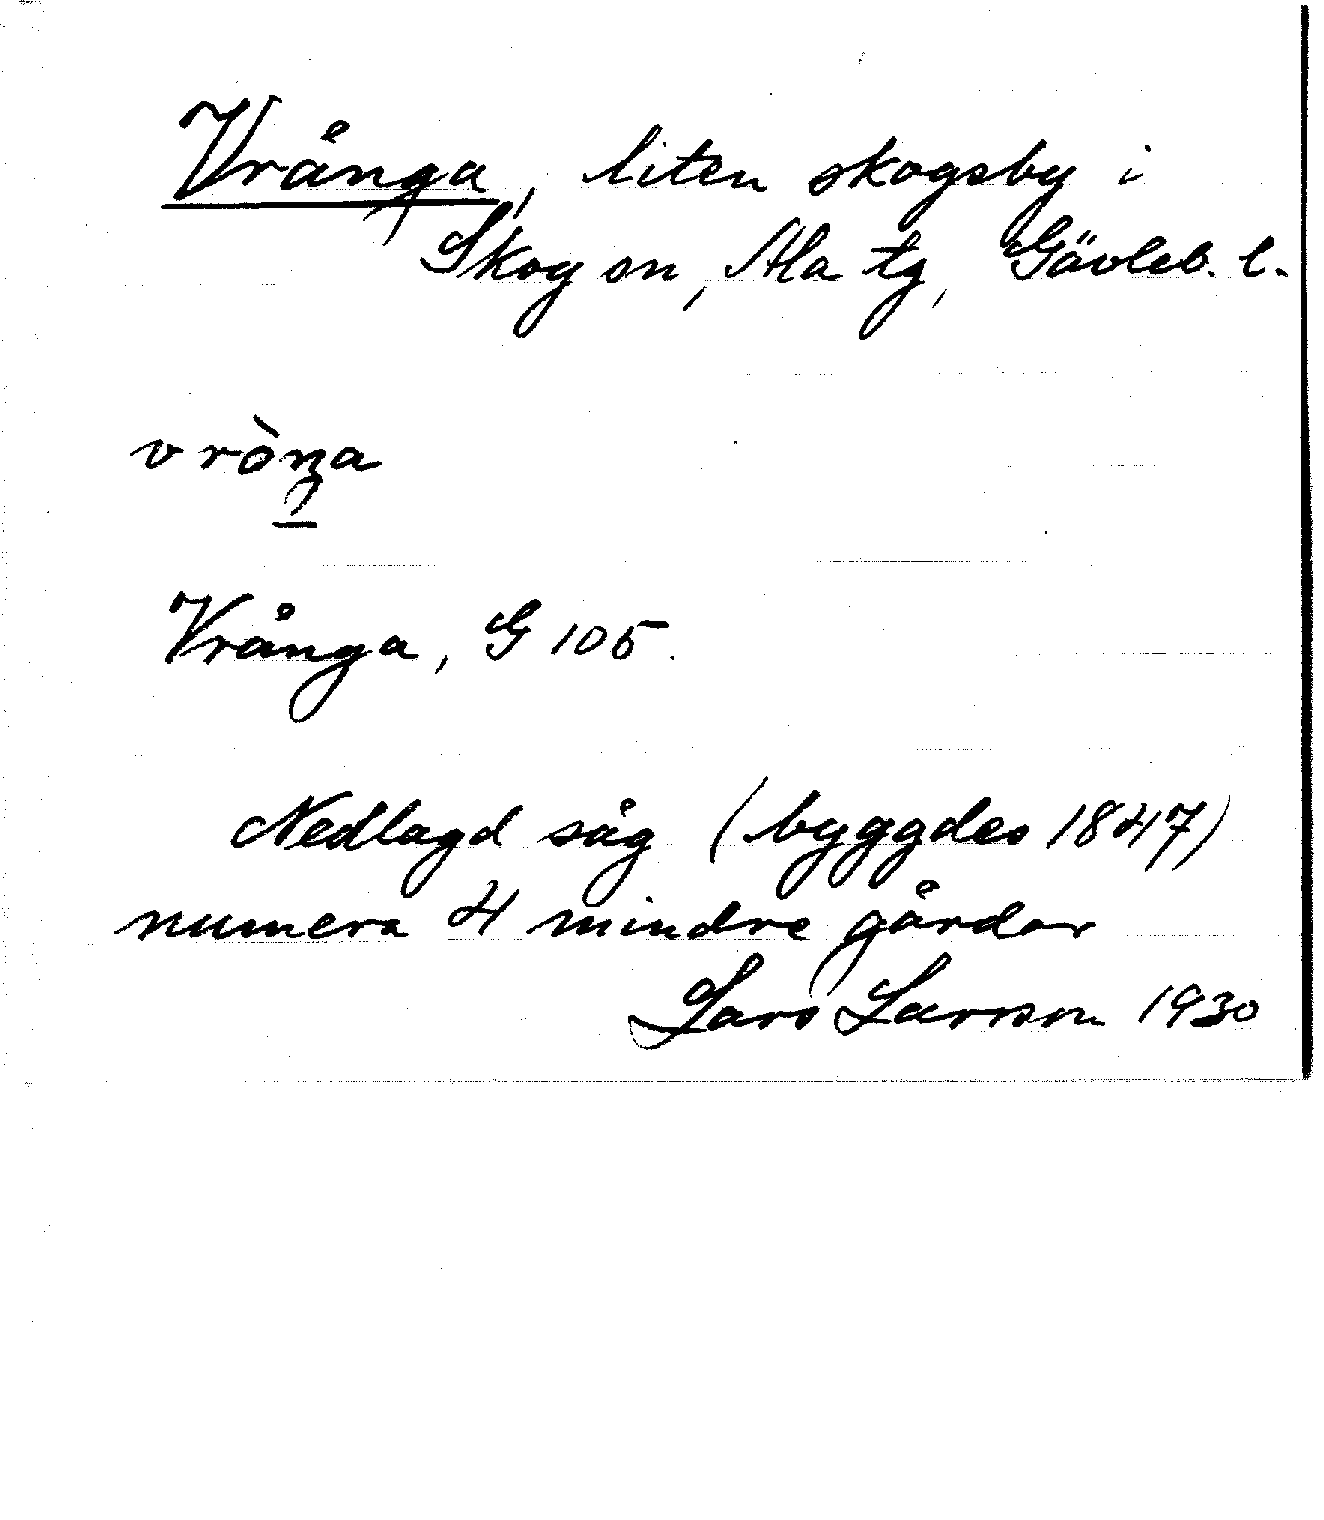 Vrånga, liten skogsby i
Skog sn, Ala tg, Gävleb. l.
vròŋa
Vrånga, G 105.
Nedlagd såg (byggdes 1847)
numera 4 mindre gårdar
Lars Larsson 1930